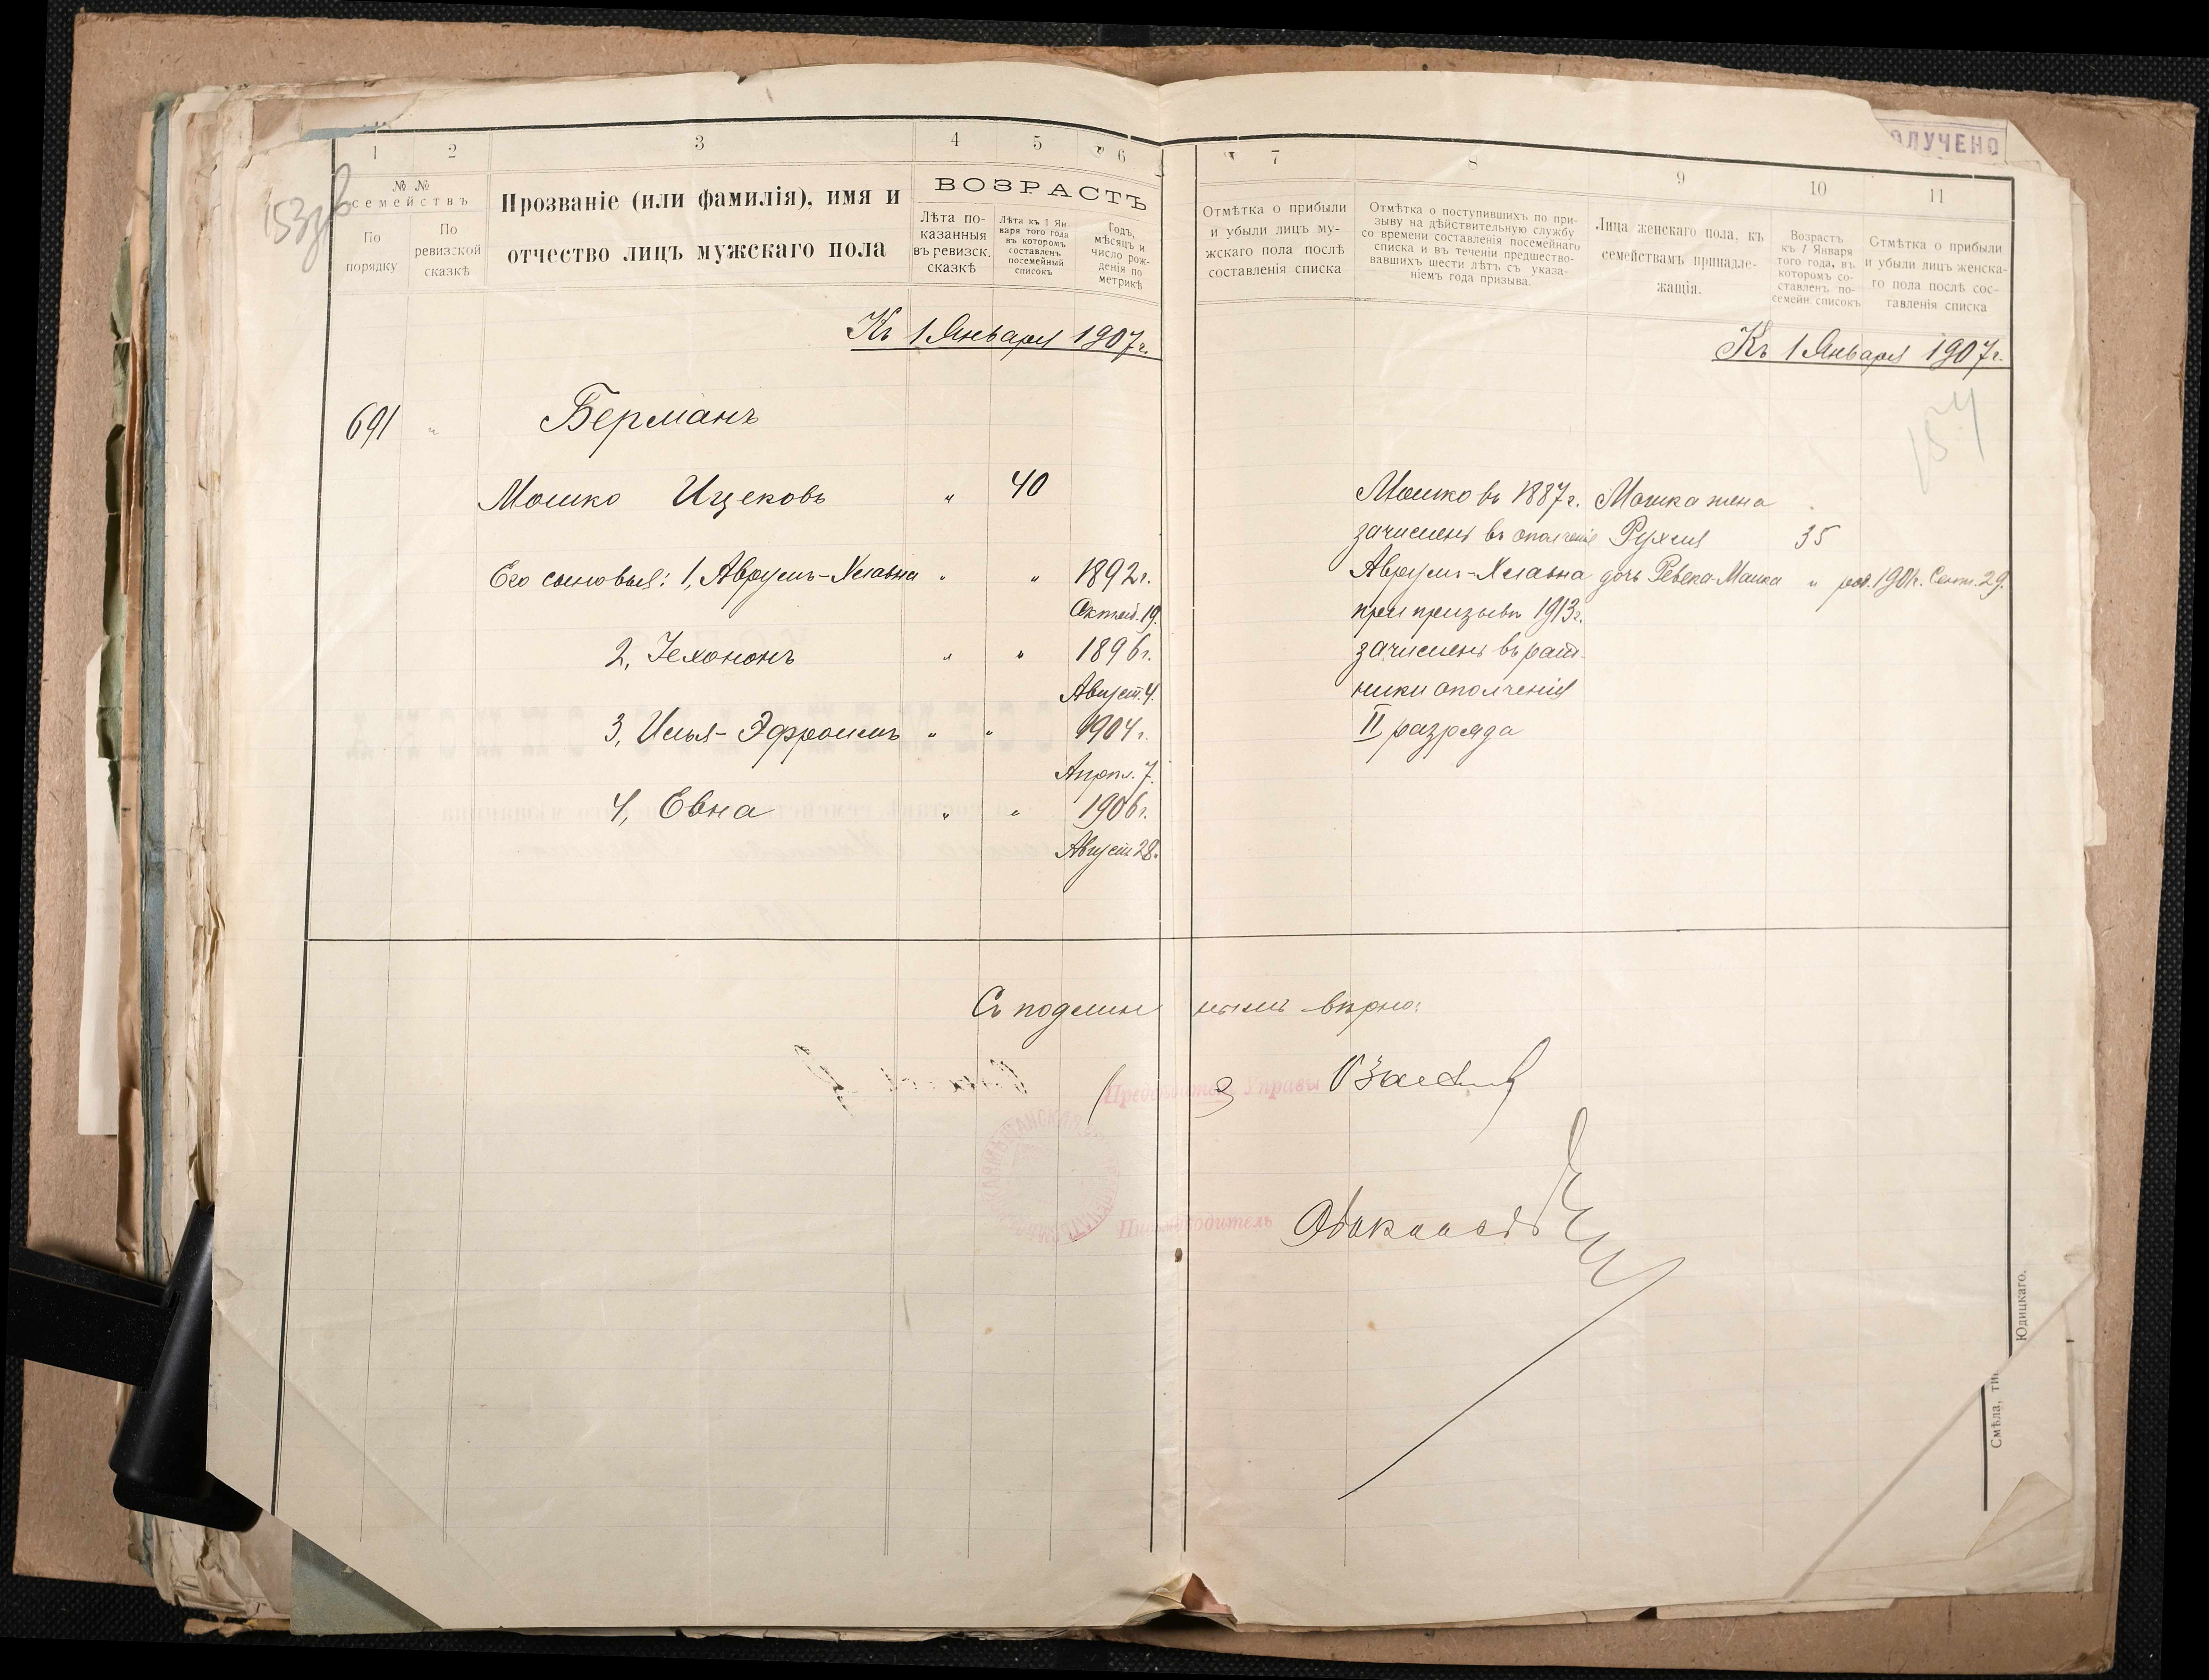 1 2 3 4 5 6
№ № семействъ
По порядку
По ревизской сказкѣ
Прозваніе (или фамилія), имя и
отчество лицъ мужскаго пола
ВОЗРАСТЪ
Лѣта по-
казанныя
въ ревизск.
сказкѣ
Лѣта къ 1 Ян
варя того года
въ которомъ
составленъ
посемейный
списокъ
Годъ,
мѣсяцъ и
число рож-
денія по
метрикѣ
Къ 1 Января 1907 г.
691 " Берманъ
Мошко Ицековъ " 40
Его сыновья: 1, Аврумъ-Хлавна " " 1892 г.
Октяб. 19.
2, Іехононъ " " 1896 г.
Август. 4.
3, Илья-Эфроимъ " " 1904 г.
Апрѣл. 7.
4, Евна " " 1906 г.
Август 28.
7 8 9 10 11
Отмѣтка о прибыли
и убыли лицъ му-
жскаго пола послѣ
составленія списка
Отмѣтка о поступившихъ по при-
зыву на дѣйствительную службу
со времени составленія посемейнаго
списка и въ теченіи предшество-
вавшихъ шести лѣтъ съ указа-
ніемъ года призыва.
Лица женскаго пола, къ
семействамъ принадле-
жащія.
Возрастъ
къ 1 Января
того года, въ
которомъ со-
ставленъ по-
семейн. списокъ
Отмѣтка о прибыли
и убыли лицъ женска-
го пола послѣ сос-
тавленія списка
Къ 1 Января 1907 г.
154
Мошко въ 1887 г. Мошка жена
зачисленъ въ ополченіе Рухля 35
Аврумъ-Хлавна дочь Ревека-Малка " род. 1901 г. Сент. 29.
при призывѣ 1913 г.
зачисленъ въ рат-
ники ополченія
II разряда
Съ подлиннымъ вѣрно:
Предсѣдатель Управы
Письмоводитель
ОЛУЧЕНО
Смѣла, ти
Юдицкаго.